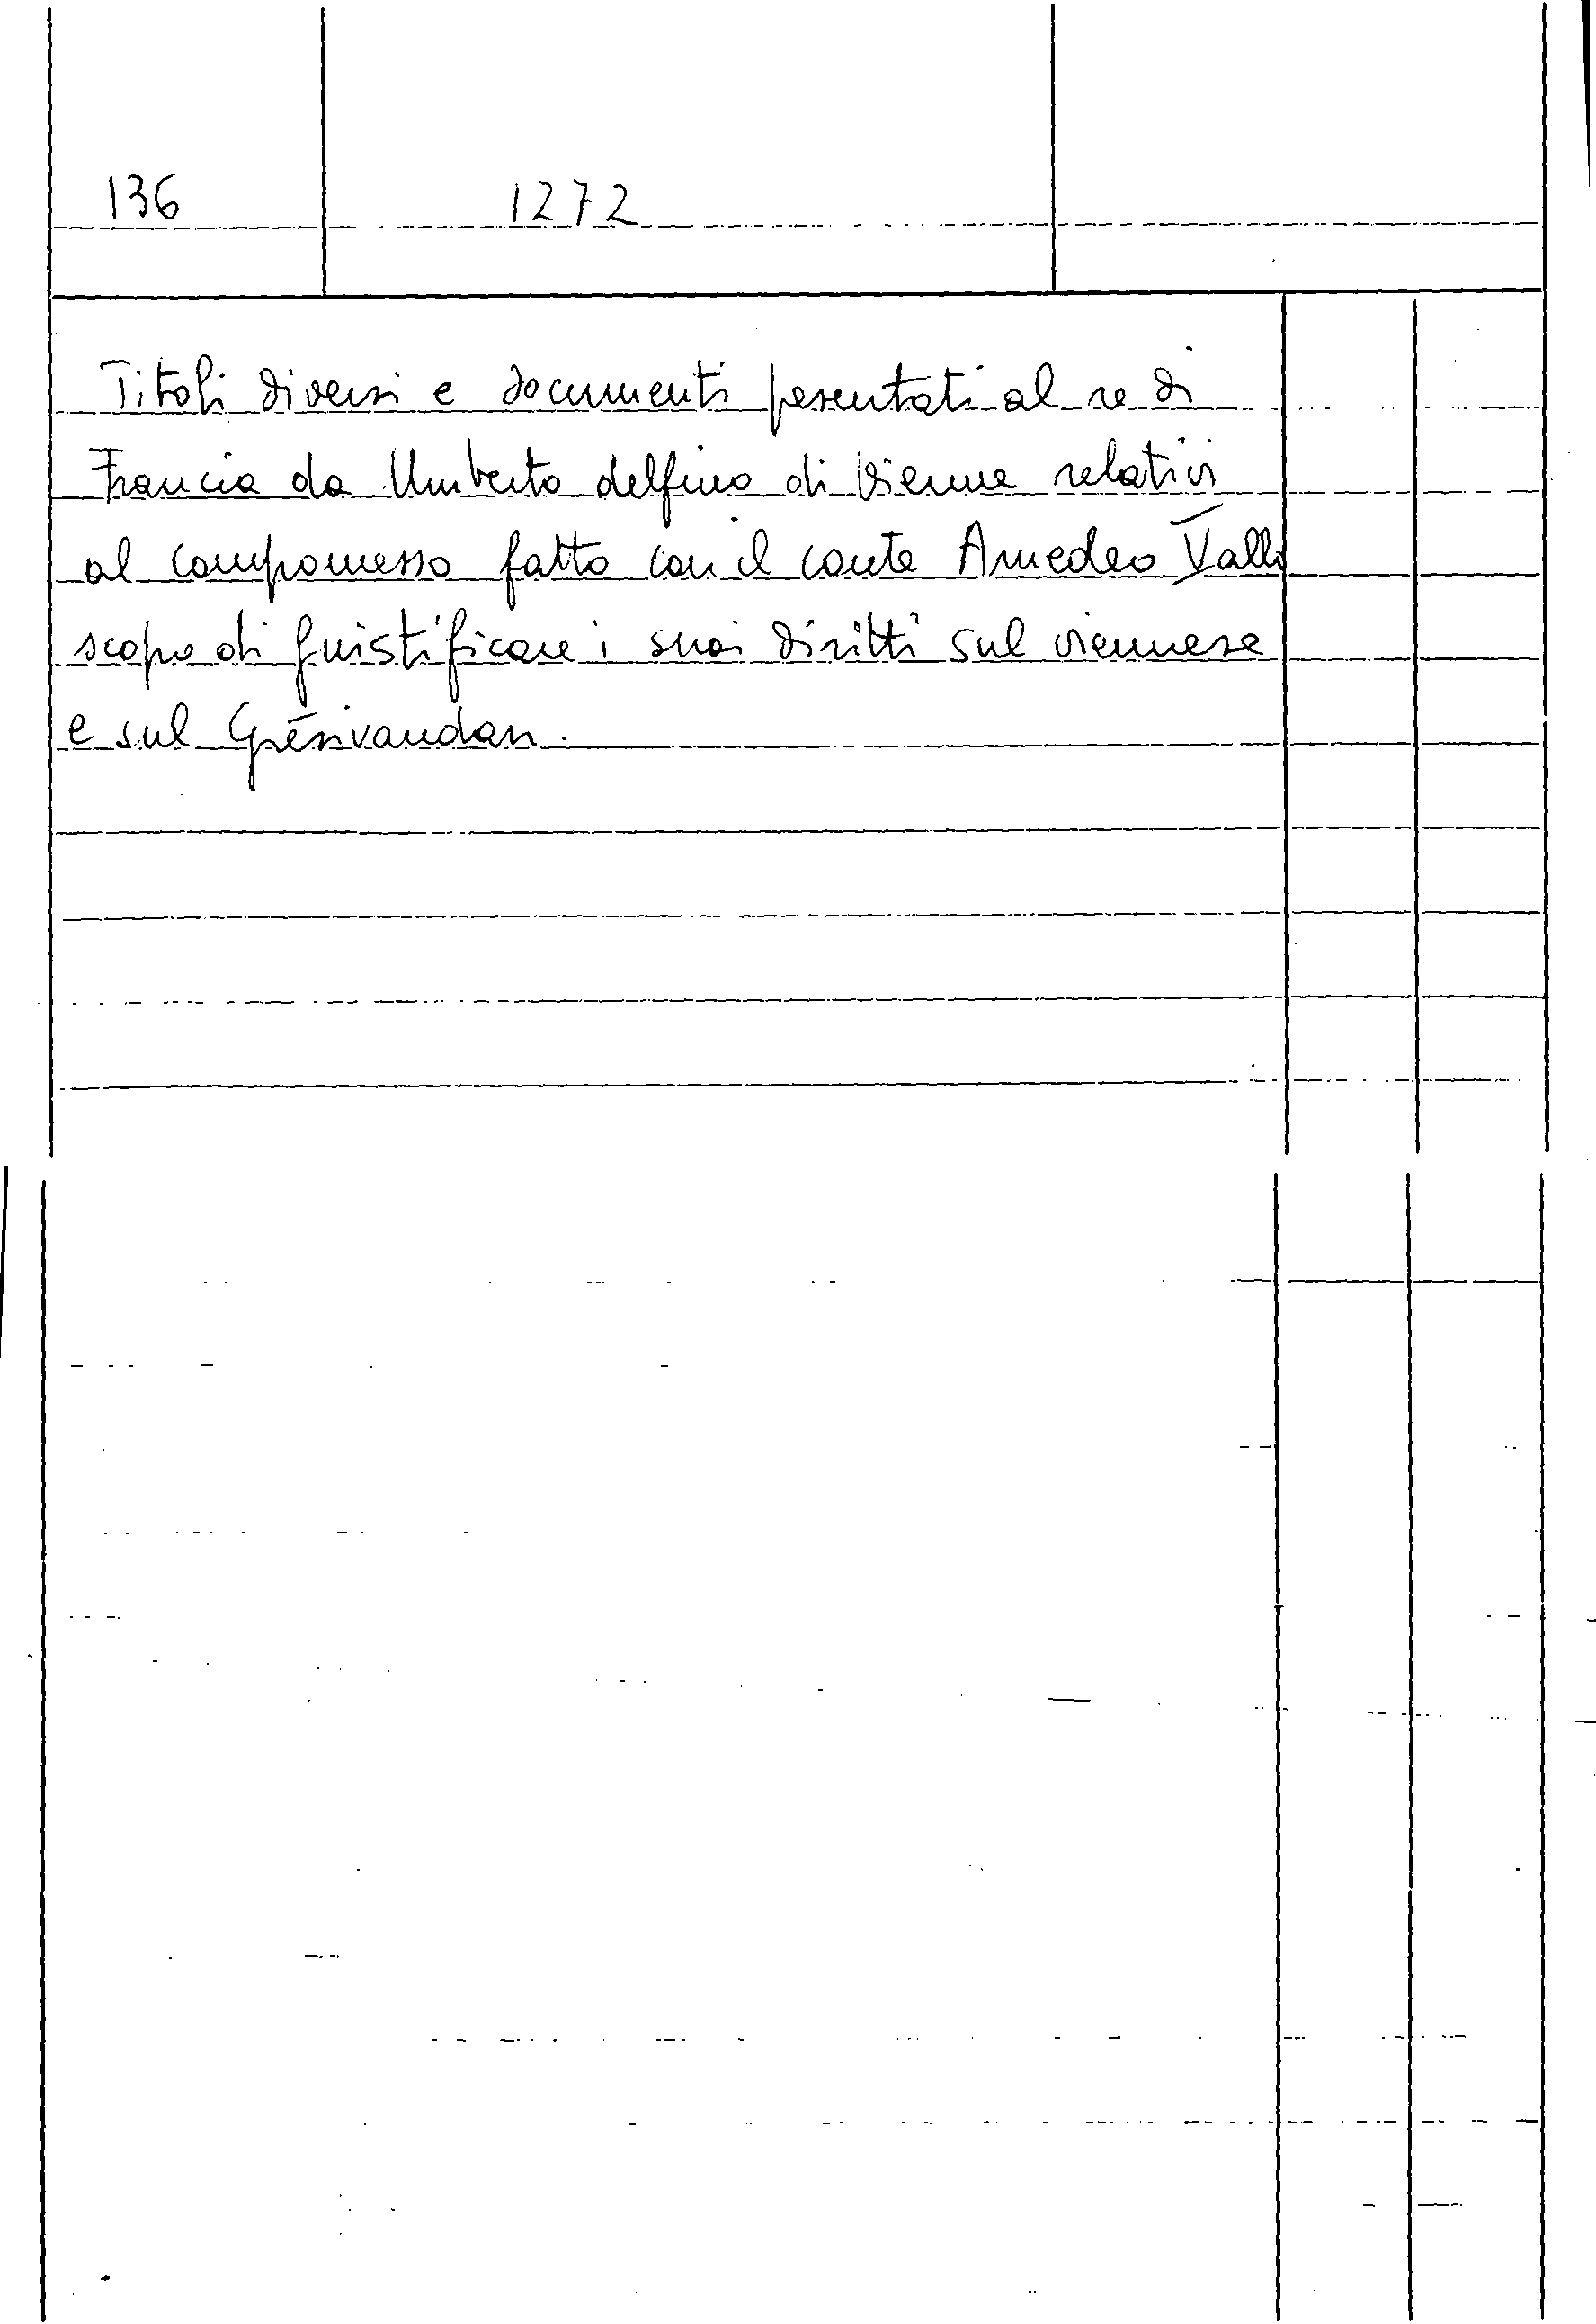 136 1272
Titoli diversi e documenti presentati al re di
Francia da Umberto delfino di Vienne relativi
al compromesso fatto con il conte Amedeo V allo
scopo di giustificare i suoi diritti sul viennese
e sul Grésivaudan.